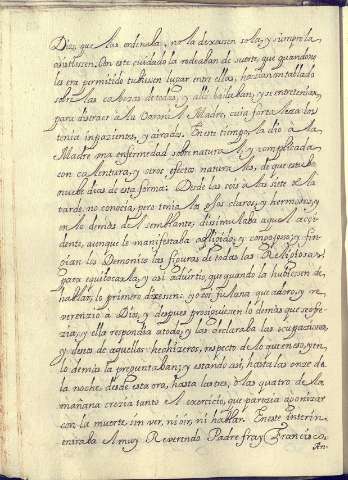 Dios, que las ordenaba, no la dexassen sola, y siempre la
asistiessen. Con este cuidado la rodeaban de suerte, que quando no
les era permitido tubiessen lugar entre ellas, hazian un tablado
sobre las cabezas de todas, y alli bailaban, y se entretenian,
para distraer a la Daron M. Madre, cuia fortaleza los
tenia impazientes, y airados. En este tiempo, la dio â la
Madre una enfermedad sobrenatural, y complicada
con calentura, y otros efectos naturales, de que estubo
nuebe dias de esta forma: Desde las seis a las siete de la
tarde, no conozia, pero tenia los ojos claros, y hermosos, y
en lo demas del semblante, disimulaba aquel acci-
dente, aunque le manifestaba afligido, y congojoso; y fin-
gian los Demonios las figuras de todas las Religiosas
para equibocarla, y assi advirtio, que quando la hubiessen de
hablar, lo primero dixessen: yo soy fulana que adoro, y re-
verenzio a Dios, y despues prosiguiessen lo demas que se ofre-
zia, y ella respondia a todo, y les declaraba las ocupaciones,
y deseos de aquellas hechizeros, respecto de lo que en eso, y en
lo demas la preguntaban; y estando asi, hasta las onze de
la noche desde esta ora, hasta las tres, ô las quatro de la
mañana crezia tanto el exercicio, que parezia agonizar
con la muerte, sin ver, ni oir, ni hablar. En este interin
entraba el muy Reverendo Padre fray Francisco
An-